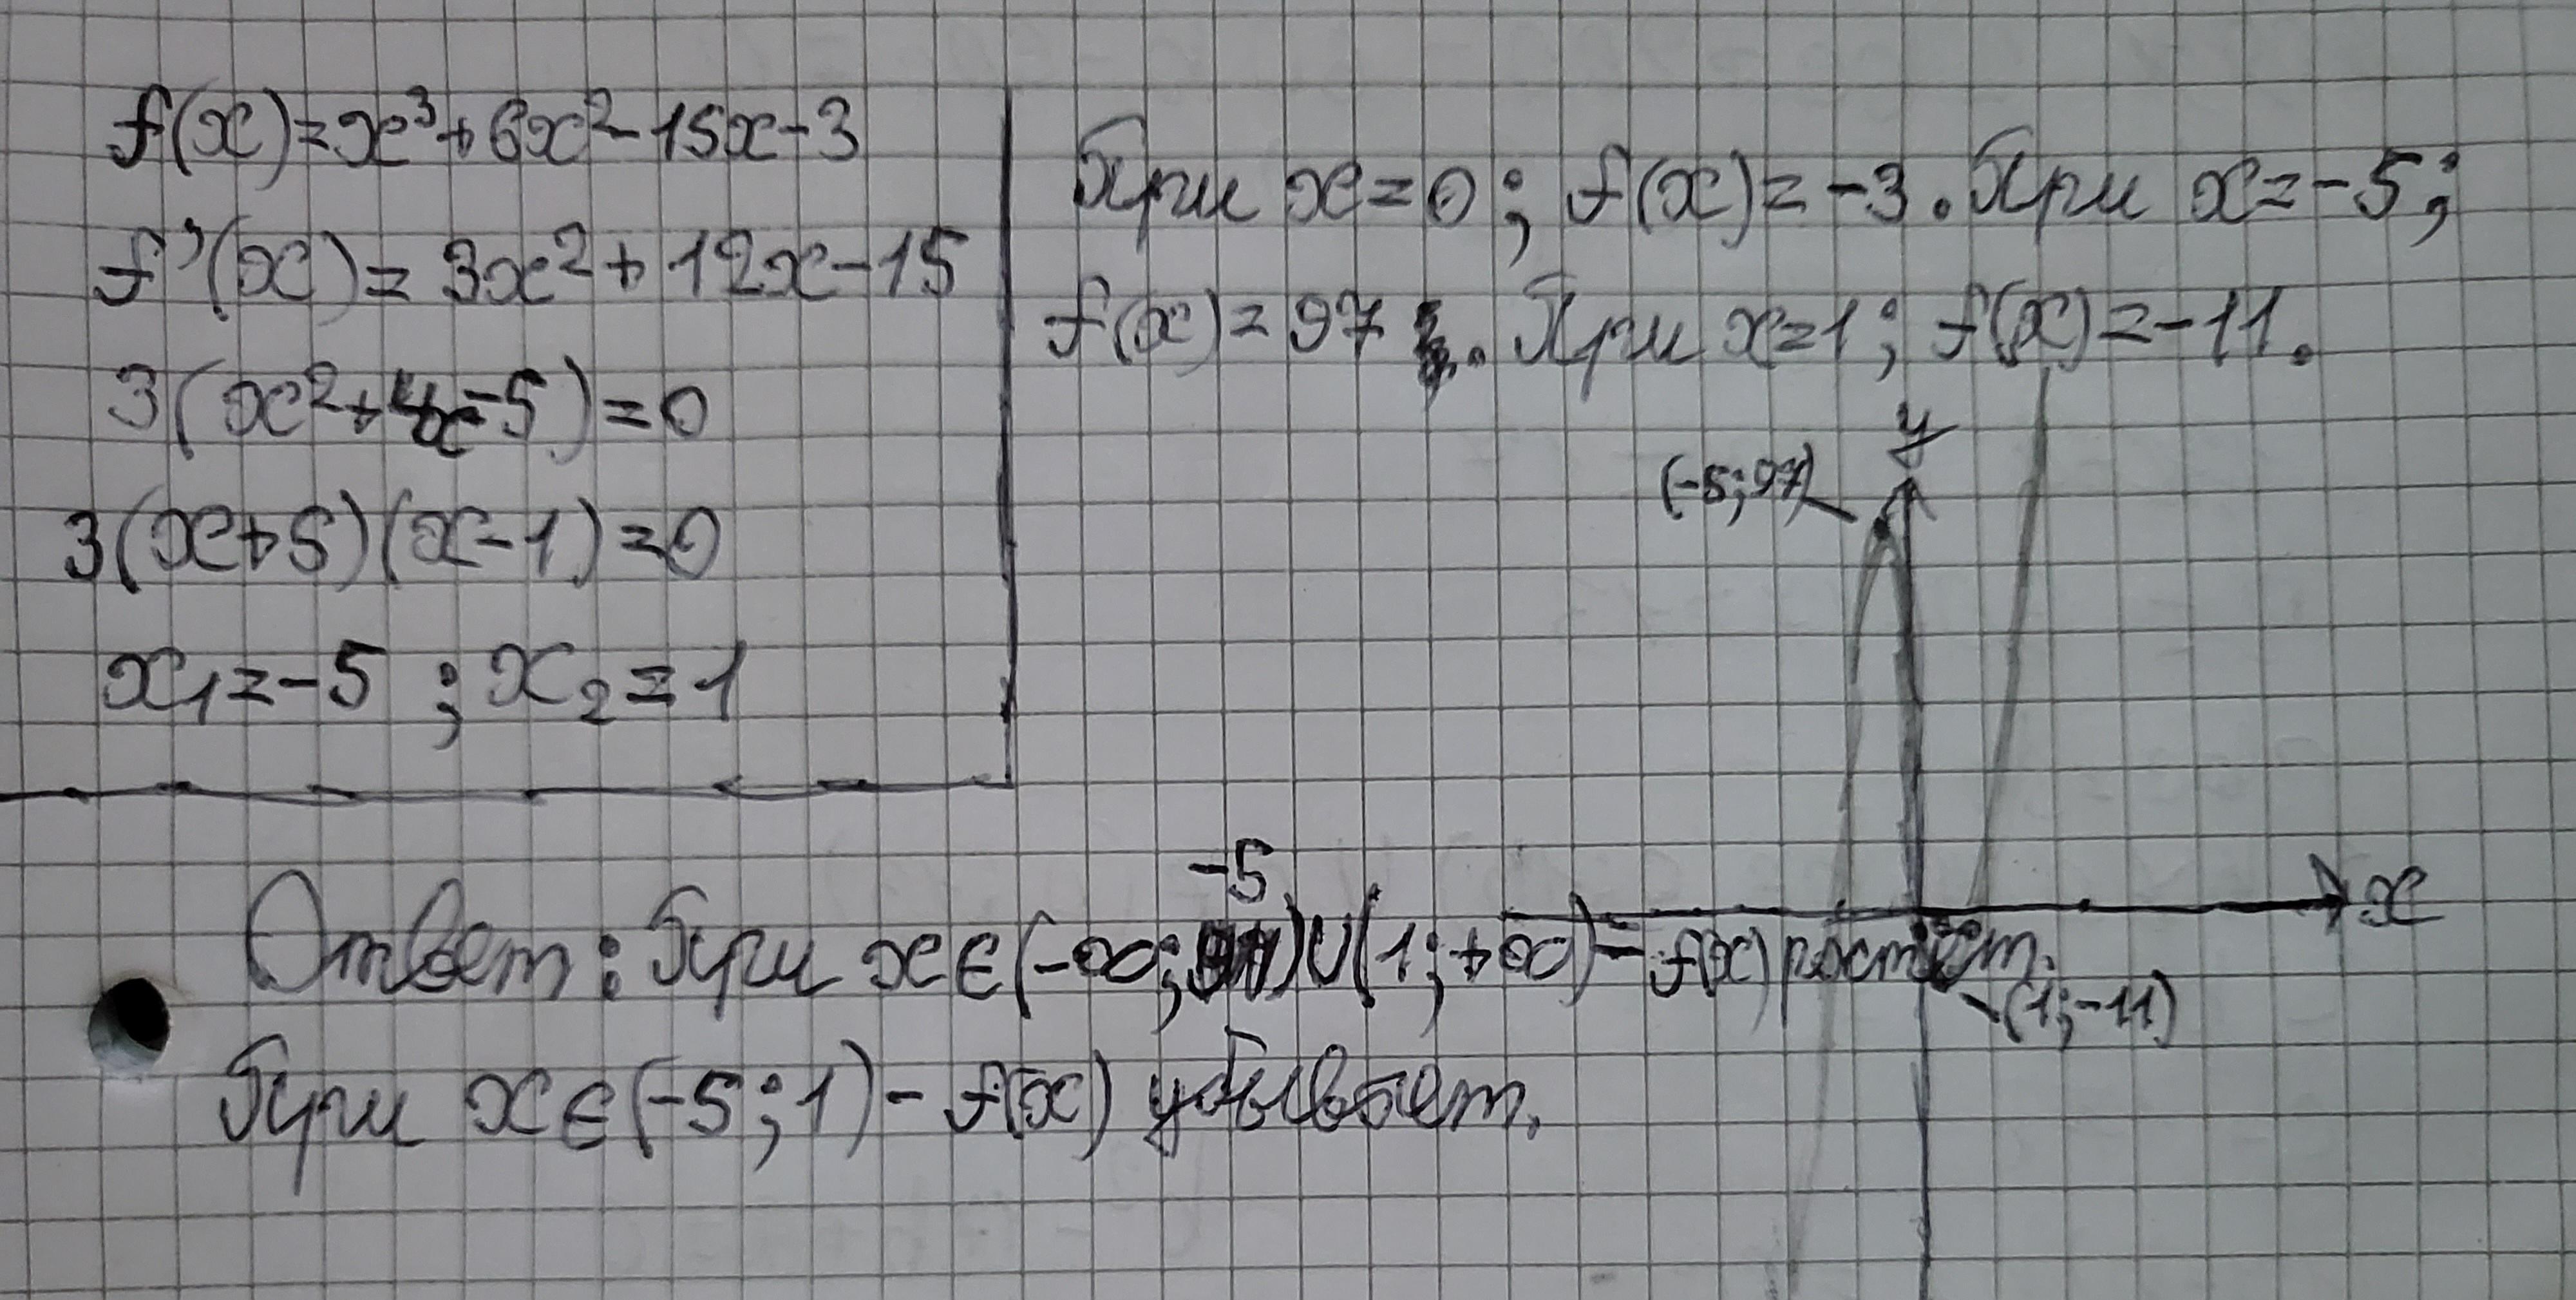 f(x)=x³+6x²-15x-3
f'(x)=3x²+12x-15
3(x²+4x-5)=0
3(x+5)(x-1)=0
x₁=-5 ; x₂=1
При x=0; f(x)=-3. При x=-5;
f(x)=97 . При x=1; f(x)=-11.
y
(-5;97)
x
(1;-11)
-5
Ответ: При x∈(-∞; )∪(1;+∞)- f(x) растет.
При x∈(-5;1)- f(x) убывает.